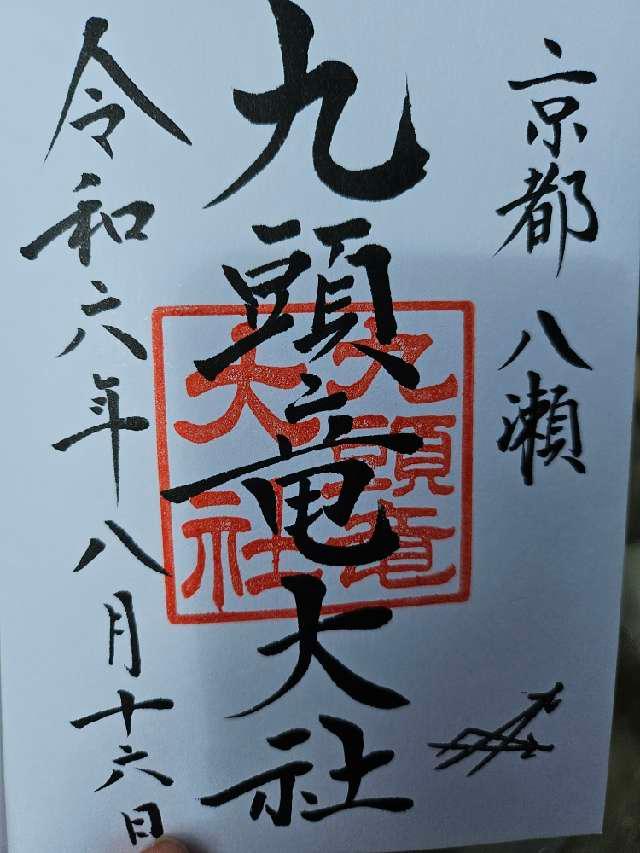 京都 八瀬
九頭竜大社
九頭竜
大社
令和六年八月十六日